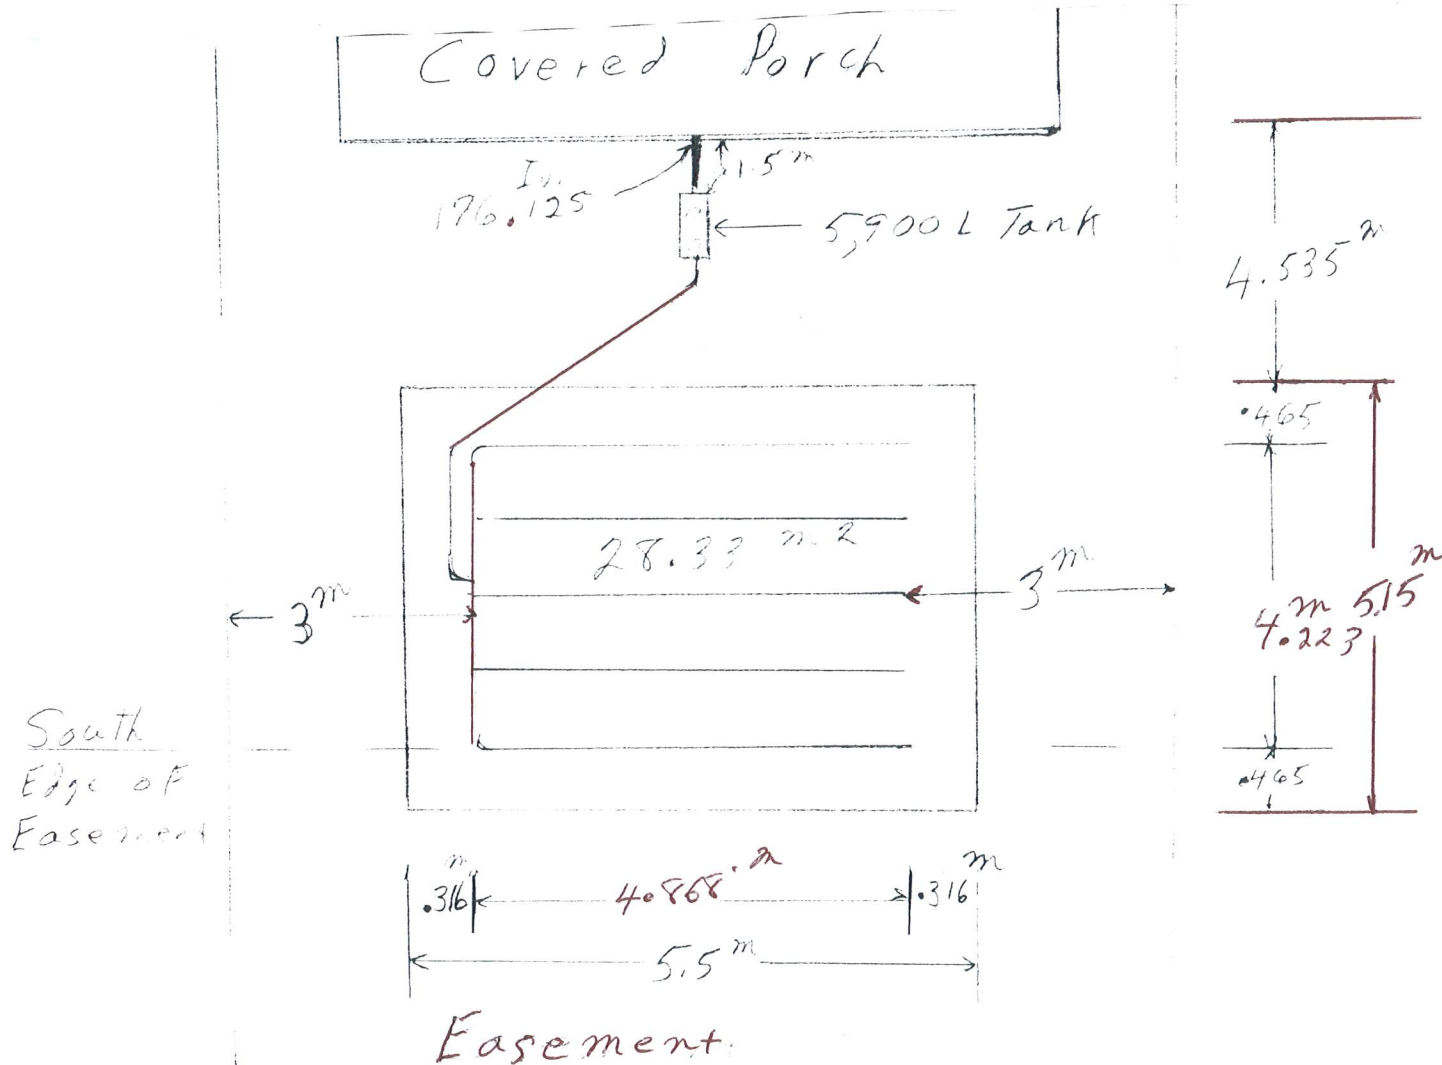 Covered Porch
In.
176.125
1.5 m
5,900 L Tank
4.535 m
.465
28.33 m2
3 m
3 m
4.223 m
5.15 m
South
Edge of
Easement
.465
.316 m
4.868 m
.316 m
5.5 m
Easement